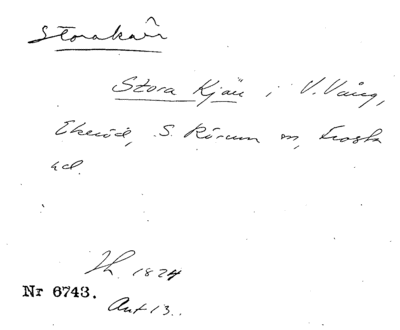 Storakärr
Stora Kjärr i V. Vång,
Ekeröd, S. Rörum m, Frosta
hd.
Th. 1824
Nr 6743.
Ant 13.